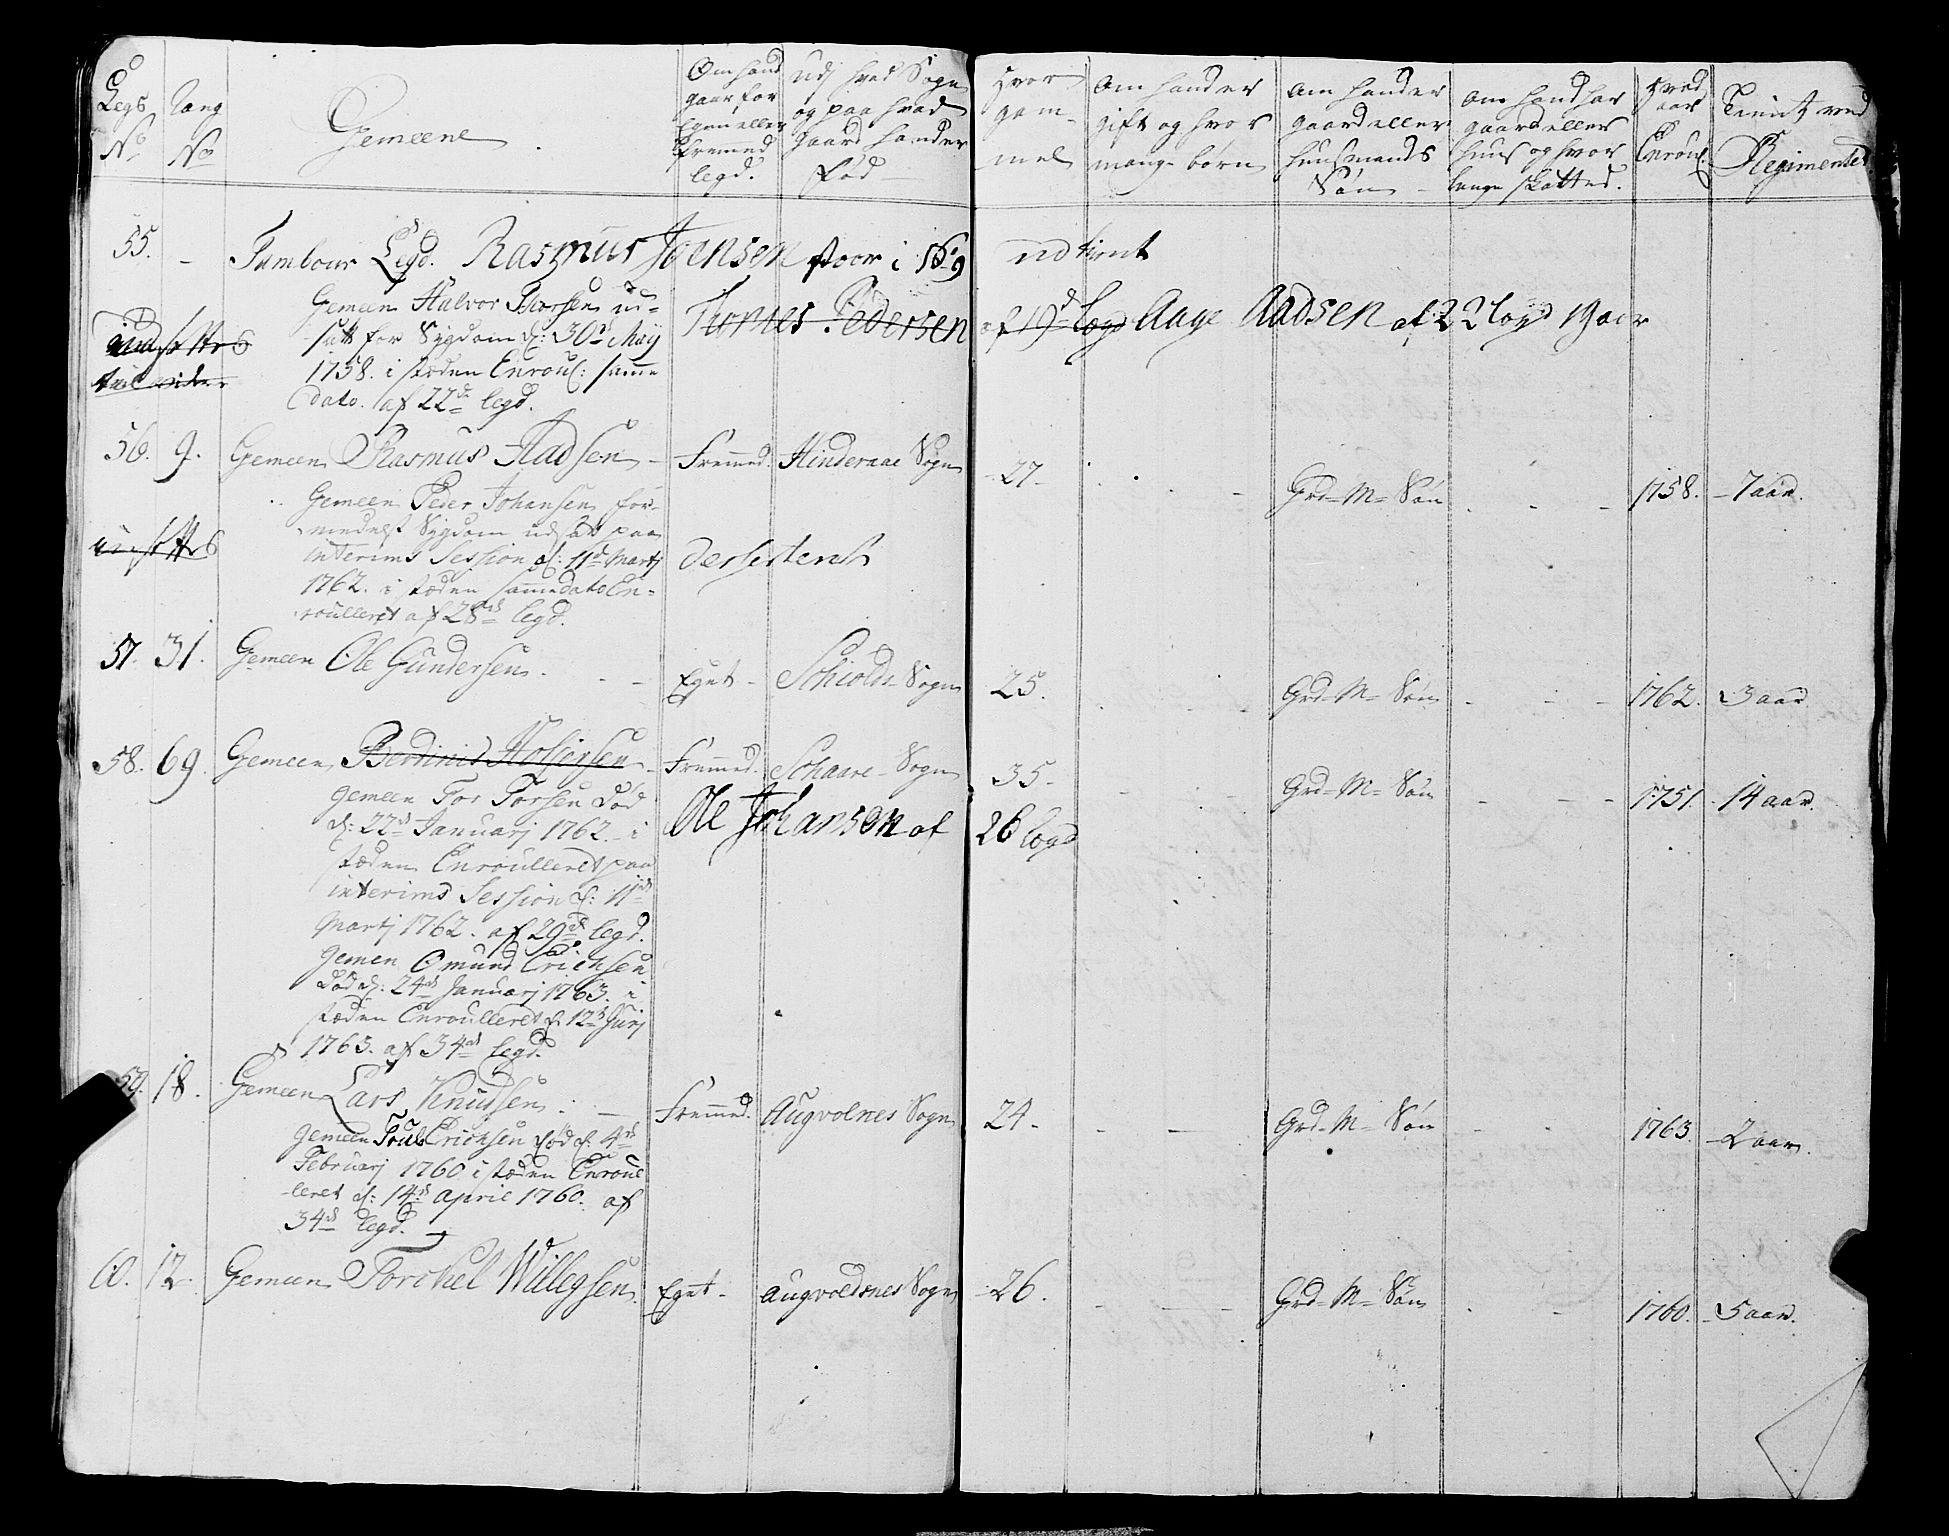 Legs
No
Rang
No
Gemeene
Om hand
gaar for
Egen eller
fremmed
legd.
Udj hvad Sogn
og paa hvad
gaard hand er
fød
Hvor
gam-
mel
Om hand er
gift og hvor
mange børn
Om hand er
gaard eller
huusmands
Søn
Om hand har
gaard eller
huus og hvor
lenge skatted.
Hvad
aar
Enroul.
Tient ved
Regimentet
55. - Tambour Legd. Rasmus Joensen staar i No 9 udtient
Gemeen Halvor Thorsen ud-
satt for Sygdom d: 30d Maij
1758. i stæden Enroul: samme
dato. af 22d legd.
Tormes Pedersen af 19d Legd Aage Aadsen af 22 legd 19 aar
56. 9. Gemeen Rasmus Aadsen - Fremmed. Hinderaae Sogn 27 - Grd-M- Søn 1758. - 7 aar.
Gemeen Peder Johansen for-
medelst Sygdom udsatt paa
interims Session d: 11d Martj
1762. i stæden samme dato En-
roulleret af 28d legd.
desserteret
57. 31. Gemeen Ole Gundersen. - Eget - Schiolds Sogn 25. Grd-M- Søn 1762. 3 aar
58. 69. Gemeen Berdinus Holgersen - Fremmed. Schaare Sogn 35 - Grd-M- Søn 1751. 14 aar.
Gemeen Tor Torsen død
d: 22d Januarj 1762 - i
stæden Enroulleret paa
interims Session d: 11d
Martj 1762. af 29d legd.
Gemen Omund Erichsen
død d: 24d Januarj 1763. i
stæden Enroulleret d: 12d Junj
1763. af 34d legd.
Ole Johansen af 26 legd
59. 18. Gemeen Lars Knudsen. - Fremmed. Augvolnes Sogn 24 - Grd-M- Søn 1763. - 2 aar.
Gemeen Poul Erichsen død d: 4d
Februarj 1760 i stæden Enroul
leret d: 14d april 1760. af
34d legd.
60. 12. Gemeen Torchel Willegsen. Eget - augvoldsnes Sogn 26. Grd-M- Søn 1760. - 5 aar.